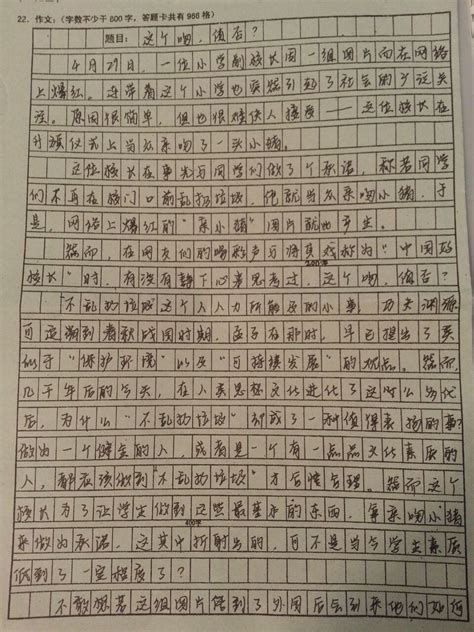 22. 作文：（字数不少于 800 字，答题卡共有 966 格）
题目：这个吻，值否？
4月29日，一位小学副校长因一组图片而在网络
上爆红。连带着这个小学也突然引起了社会的广泛关
注。原因很简单，但也很难使人接受——这位校长在
升旗仪式上当众亲吻了一头小猪。
这位校长在事先与同学们做了个承诺，称若同学
们不再在校门口前乱扔垃圾，他就当众亲吻小猪，于
是，网络上爆红的“亲小猪”图片就此产生。
然而，在网友们的喝彩声与将其戏称为“中国好
200字
校长”时，有没有静下心来思考过，这个吻，值否？
不乱扔垃圾这个人人力所能及的小事，
可追溯到春秋战国时期，孟子在那时，早已提出了类
似于“保护环境”以及“可持续发展”的观点。然而，
几千年后的今天，在人类思想文化进化了这么多的代
后，为什么“不乱扔垃圾”却成了一种值得表扬的事？
做为一个健全的人，或者是一个有一点点文化素质的
人，都应该做到“不乱扔垃圾”才合情合理。然而这个
校长为了让学生做到这些最基本的东西，拿亲吻小猪
400字
来做为承诺，这其中折射出的，可不是当今学生素质
低到了一定程度了？
不敢想若这组图片传到了外国后会到来他们如何